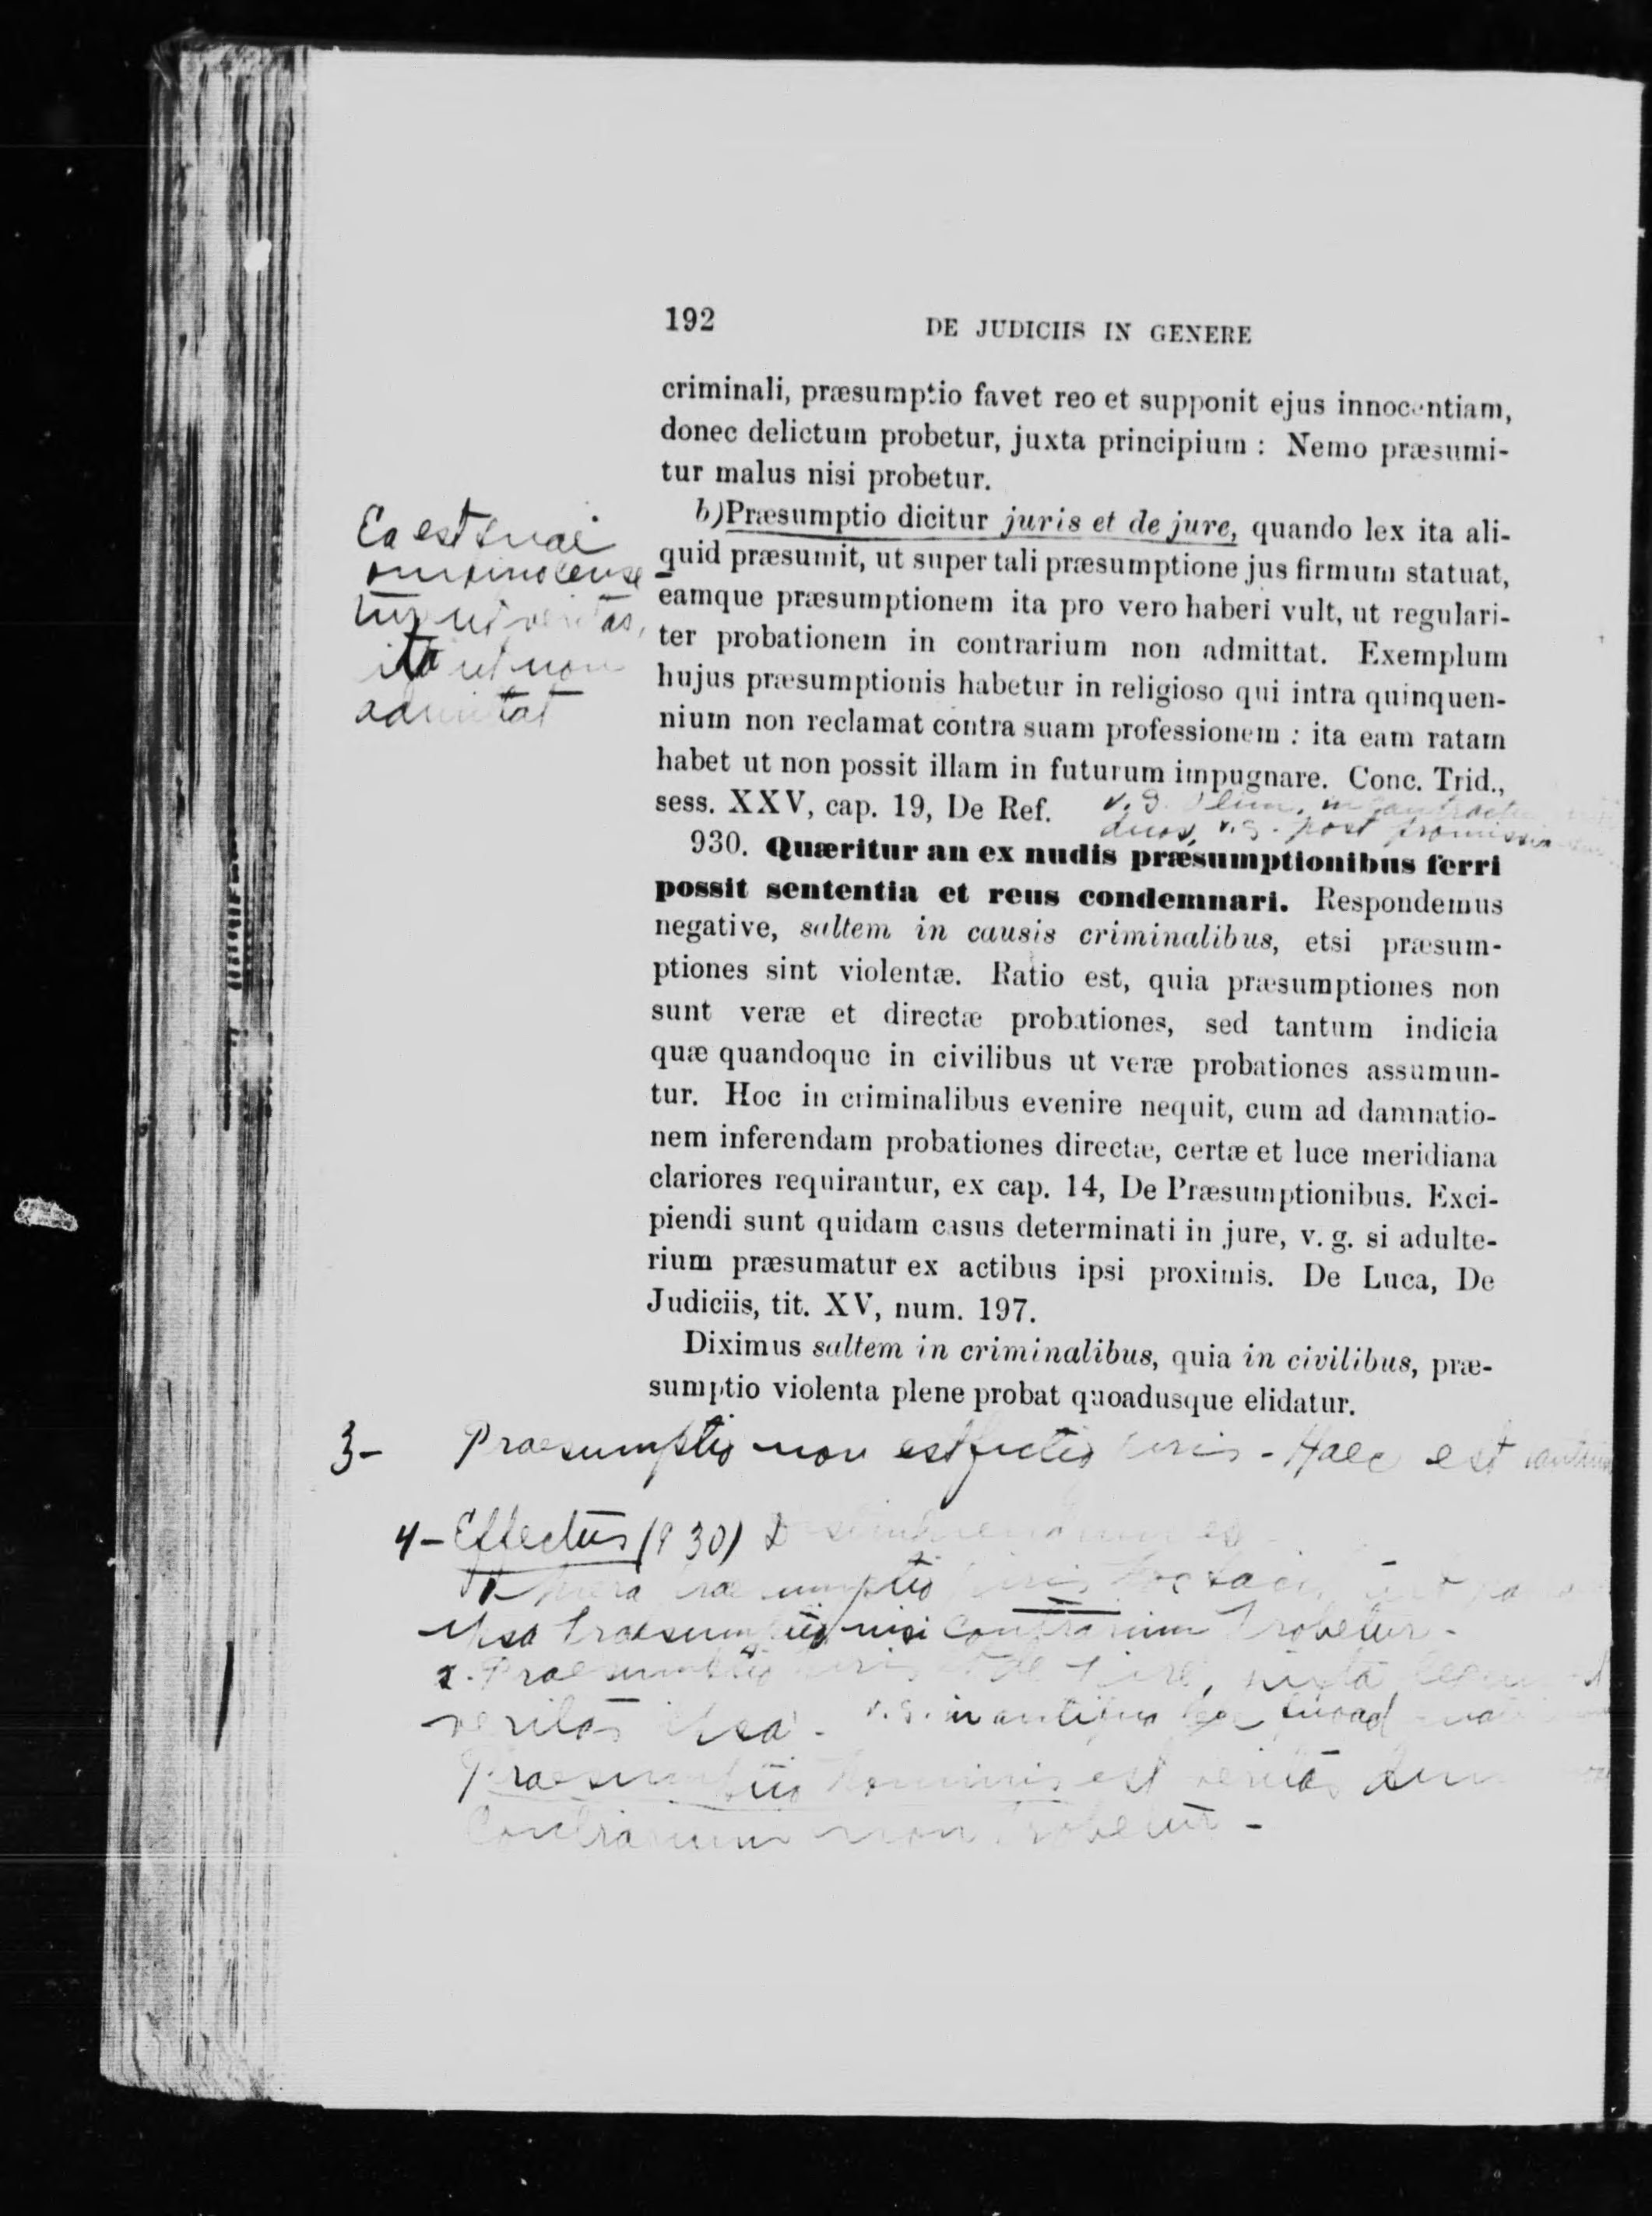 192
DE JUDICIIS IN GENERE
criminali, præsumptio favet reo et supponit ejus innocentiam,
donec delictum probetur, juxta principium : Nemo præsumi-
tur malus nisi probetur.
b) Præsumptio dicitur juris et de jure, quando lex ita ali-
quid præsumit, ut super tali præsumptione jus firmum statuat,
eamque præsumptionem ita pro vero haberi vult, ut regulari-
ter probationem in contrarium non admittat. Exemplum
hujus præsumptionis habetur in religioso qui intra quinquen-
nium non reclamat contra suam professionem : ita eam ratam
habet ut non possit illam in futurum impugnare. Conc. Trid.,
sess. XXV, cap. 19, De Ref.
Ea est quae
omnino cense
tur ut veritas,
ita ut non
admittat
v. g. olim, in contractu
duos, v. g. post
930. Quæritur an ex nudis præsumptionibus ferri
possit sententia et reus condemnari. Respondemus
negative, saltem in causis criminalibus, etsi præsum-
ptiones sint violentæ. Ratio est, quia præsumptiones non
sunt veræ et directæ probationes, sed tantum indicia
quæ quandoque in civilibus ut veræ probationes assumun-
tur. Hoc in criminalibus evenire nequit, cum ad damnatio-
nem inferendam probationes directæ, certæ et luce meridiana
clariores requirantur, ex cap. 14, De Præsumptionibus. Exci-
piendi sunt quidam casus determinati in jure, v. g. si adulte-
rium præsumatur ex actibus ipsi proximis. De Luca, De
Judiciis, tit. XV, num. 197.
Diximus saltem in criminalibus, quia in civilibus, præ-
sumptio violenta plene probat quoadusque elidatur.
3- Praesumptio non est fictio juris - Haec est
4- Effectus (930)
1. Mera praesumptio juris
ipsa praesumptio nisi contrarium probetur -
2. Praesumptio juris et de jure, juxta legem
veritas ipsa - v. g. in antiqua lege quoad
Praesumptio hominis est veritas dum
contrarium non probetur -